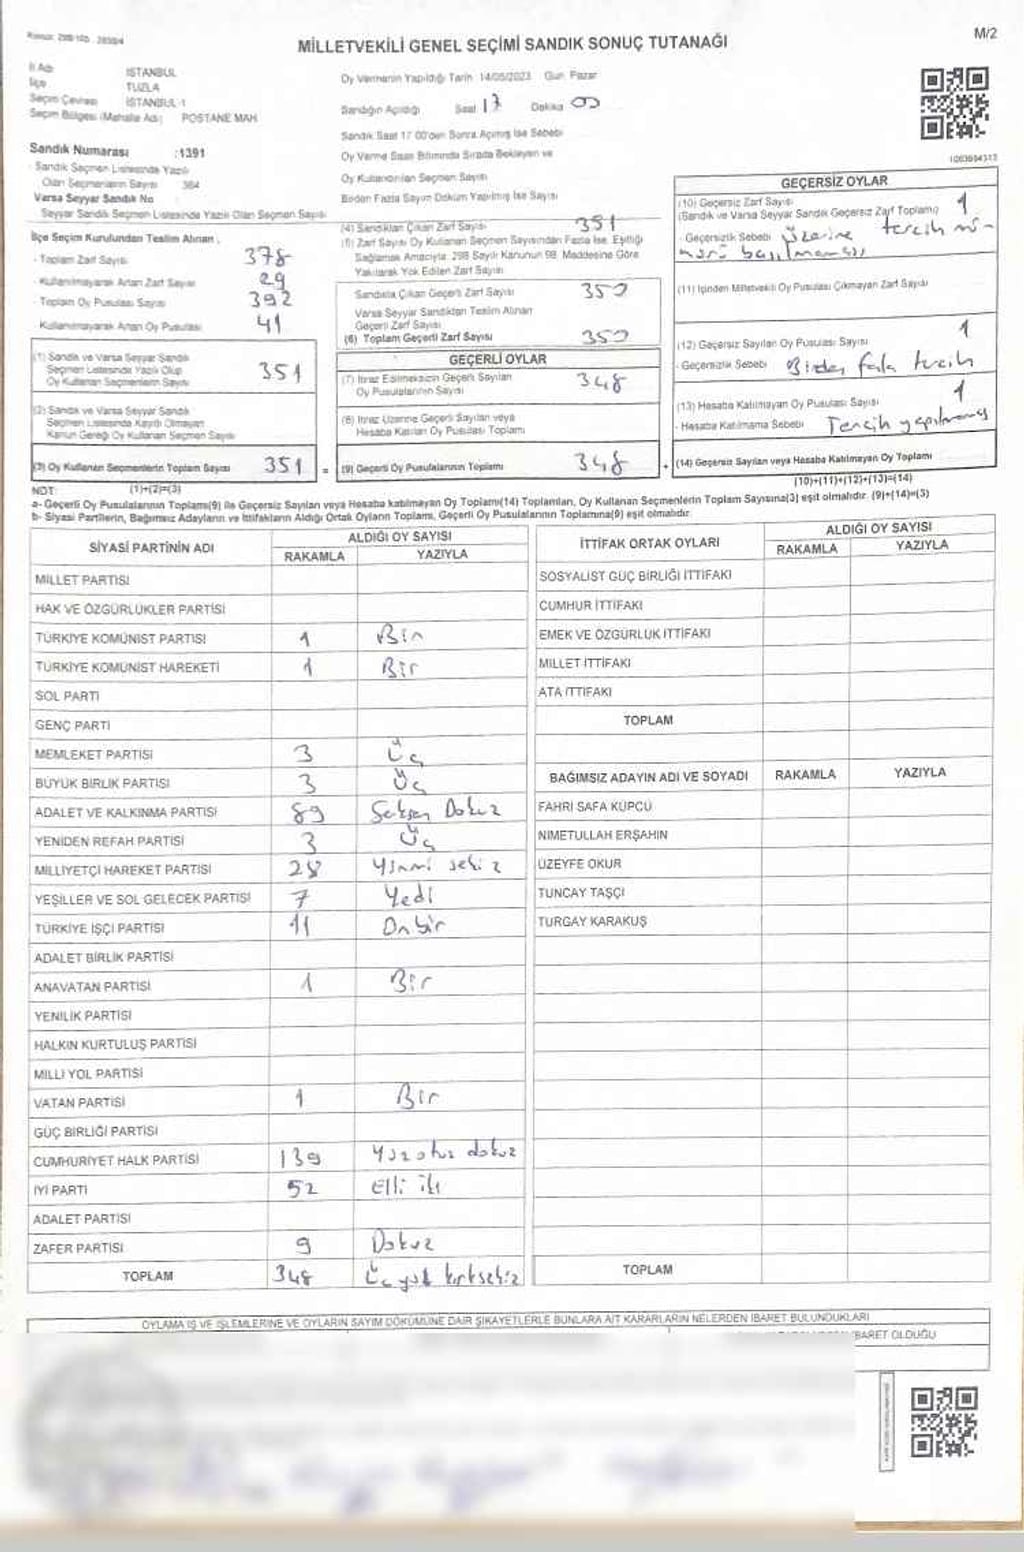 MİLLETVEKİLİ GENEL SEÇİMİ SANDIK SONUÇ TUTANAĞI
M/2
İl Adı İSTANBUL
İlçe TUZLA
Seçim Çevresi İSTANBUL-1
Seçim Bölgesi (Mahalle Adı) POSTANE MAH.
Sandık Numarası :1391
Sandık Seçmen Listesinde Yazılı
Olan Seçmenlerin Sayısı 384
Varsa Seyyar Sandık No
Seyyar Sandık Seçmen Listesinde Yazılı Olan Seçmen Sayısı
İlçe Seçim Kurulundan Teslim Alınan ;
- Toplam Zarf Sayısı 378
- Kullanılmayarak Artan Zarf Sayısı 29
- Toplam Oy Pusulası Sayısı 392
- Kullanılmayarak Artan Oy Pusulası 41
(1) Sandık ve Varsa Seyyar Sandık
Seçmen Listesinde Yazılı Olup
Oy Kullanan Seçmenlerin Sayısı 351
(2) Sandık ve Varsa Seyyar Sandık
Seçmen Listesinde Kayıtlı Olmayan
Kanun Gereği Oy Kullanan Seçmen Sayısı
(3) Oy Kullanan Seçmenlerin Toplam Sayısı 351 =
Oy Vermenin Yapıldığı Tarih 14/05/2023 Gün Pazar
Sandığın Açıldığı Saat 17 Dakika 00
Sandık Saat 17:00'den Sonra Açılmış İse Sebebi
Oy Verme Saati Bitiminde Sırada Bekleyen ve
Oy Kullandırılan Seçmen Sayısı
Birden Fazla Sayım Döküm Yapılmış İse Sayısı
(4) Sandıktan Çıkan Zarf Sayısı 351
(5) Zarf Sayısı Oy Kullanan Seçmen Sayısından Fazla İse, Eşitliği
Sağlamak Amacıyla 298 Sayılı Kanunun 98. Maddesine Göre
Yakılarak Yok Edilen Zarf Sayısı
Sandıkta Çıkan Geçerli Zarf Sayısı 350
Varsa Seyyar Sandıktan Teslim Alınan
Geçerli Zarf Sayısı
(6) Toplam Geçerli Zarf Sayısı 350
GEÇERLİ OYLAR
(7) İtiraz Edilmeksizin Geçerli Sayılan
Oy Pusulalarının Sayısı 348
(8) İtiraz Üzerine Geçerli Sayılan veya
Hesaba Katılan Oy Pusulası Toplamı
(9) Geçerli Oy Pusulalarının Toplamı 348 +
1083694313
GEÇERSİZ OYLAR
(10) Geçersiz Zarf Sayısı 1
(Sandık ve Varsa Seyyar Sandık Geçersiz Zarf Toplamı)
- Geçersizlik Sebebi Üzerine tercih mü-
hürü basılmamış
(11) İçinden Milletvekili Oy Pusulası Çıkmayan Zarf Sayısı
(12) Geçersiz Sayılan Oy Pusulası Sayısı 1
- Geçersizlik Sebebi Birden fazla tercih
(13) Hesaba Katılmayan Oy Pusulası Sayısı 1
- Hesaba Katılmama Sebebi Tercih yapılmamış
(14) Geçersiz Sayılan veya Hesaba Katılmayan Oy Toplamı
(10)+(11)+(12)+(13)=(14)
NOT: (1)+(2)=(3)
a- Geçerli Oy Pusulalarının Toplamı(9) ile Geçersiz Sayılan veya Hesaba katılmayan Oy Toplamı(14) Toplamları, Oy Kullanan Seçmenlerin Toplam Sayısına(3) eşit olmalıdır. (9)+(14)=(3)
b- Siyasi Partilerin, Bağımsız Adayların ve İttifakların Aldığı Ortak Oyların Toplamı, Geçerli Oy Pusulalarının Toplamına(9) eşit olmalıdır.
SİYASİ PARTİNİN ADI ALDIĞI OY SAYISI
RAKAMLA YAZIYLA
MİLLET PARTİSİ
HAK VE ÖZGÜRLÜKLER PARTİSİ
TÜRKİYE KOMÜNİST PARTİSİ 1 Bir
TÜRKİYE KOMÜNİST HAREKETİ 1 Bir
SOL PARTİ
GENÇ PARTİ
MEMLEKET PARTİSİ 3 Üç
BÜYÜK BİRLİK PARTİSİ 3 Üç
ADALET VE KALKINMA PARTİSİ 89 Seksen Dokuz
YENİDEN REFAH PARTİSİ 3 Üç
MİLLİYETÇİ HAREKET PARTİSİ 28 Yirmi sekiz
YEŞİLLER VE SOL GELECEK PARTİSİ 7 Yedi
TÜRKİYE İŞÇİ PARTİSİ 11 Onbir
ADALET BİRLİK PARTİSİ
ANAVATAN PARTİSİ 1 Bir
YENİLİK PARTİSİ
HALKIN KURTULUŞ PARTİSİ
MİLLİ YOL PARTİSİ
VATAN PARTİSİ 1 Bir
GÜÇ BİRLİĞİ PARTİSİ
CUMHURİYET HALK PARTİSİ 139 Yüz otuz dokuz
İYİ PARTİ 52 Elli iki
ADALET PARTİSİ
ZAFER PARTİSİ 9 Dokuz
TOPLAM 348 Üçyüz kırksekiz
İTTİFAK ORTAK OYLARI ALDIĞI OY SAYISI
RAKAMLA YAZIYLA
SOSYALİST GÜÇ BİRLİĞİ İTTİFAKI
CUMHUR İTTİFAKI
EMEK VE ÖZGÜRLÜK İTTİFAKI
MİLLET İTTİFAKI
ATA İTTİFAKI
TOPLAM
BAĞIMSIZ ADAYIN ADI VE SOYADI RAKAMLA YAZIYLA
FAHRİ SAFA KÜPCÜ
NİMETULLAH ERŞAHİN
ÜZEYFE OKUR
TUNCAY TAŞÇI
TURGAY KARAKUŞ
TOPLAM
OYLAMA İŞ VE İŞLEMLERİNE VE OYLARIN SAYIM DÖKÜMÜNE DAİR ŞİKAYETLERLE BUNLARA AİT KARARLARIN NELERDEN İBARET BULUNDUKLARI
İBARET OLDUĞU